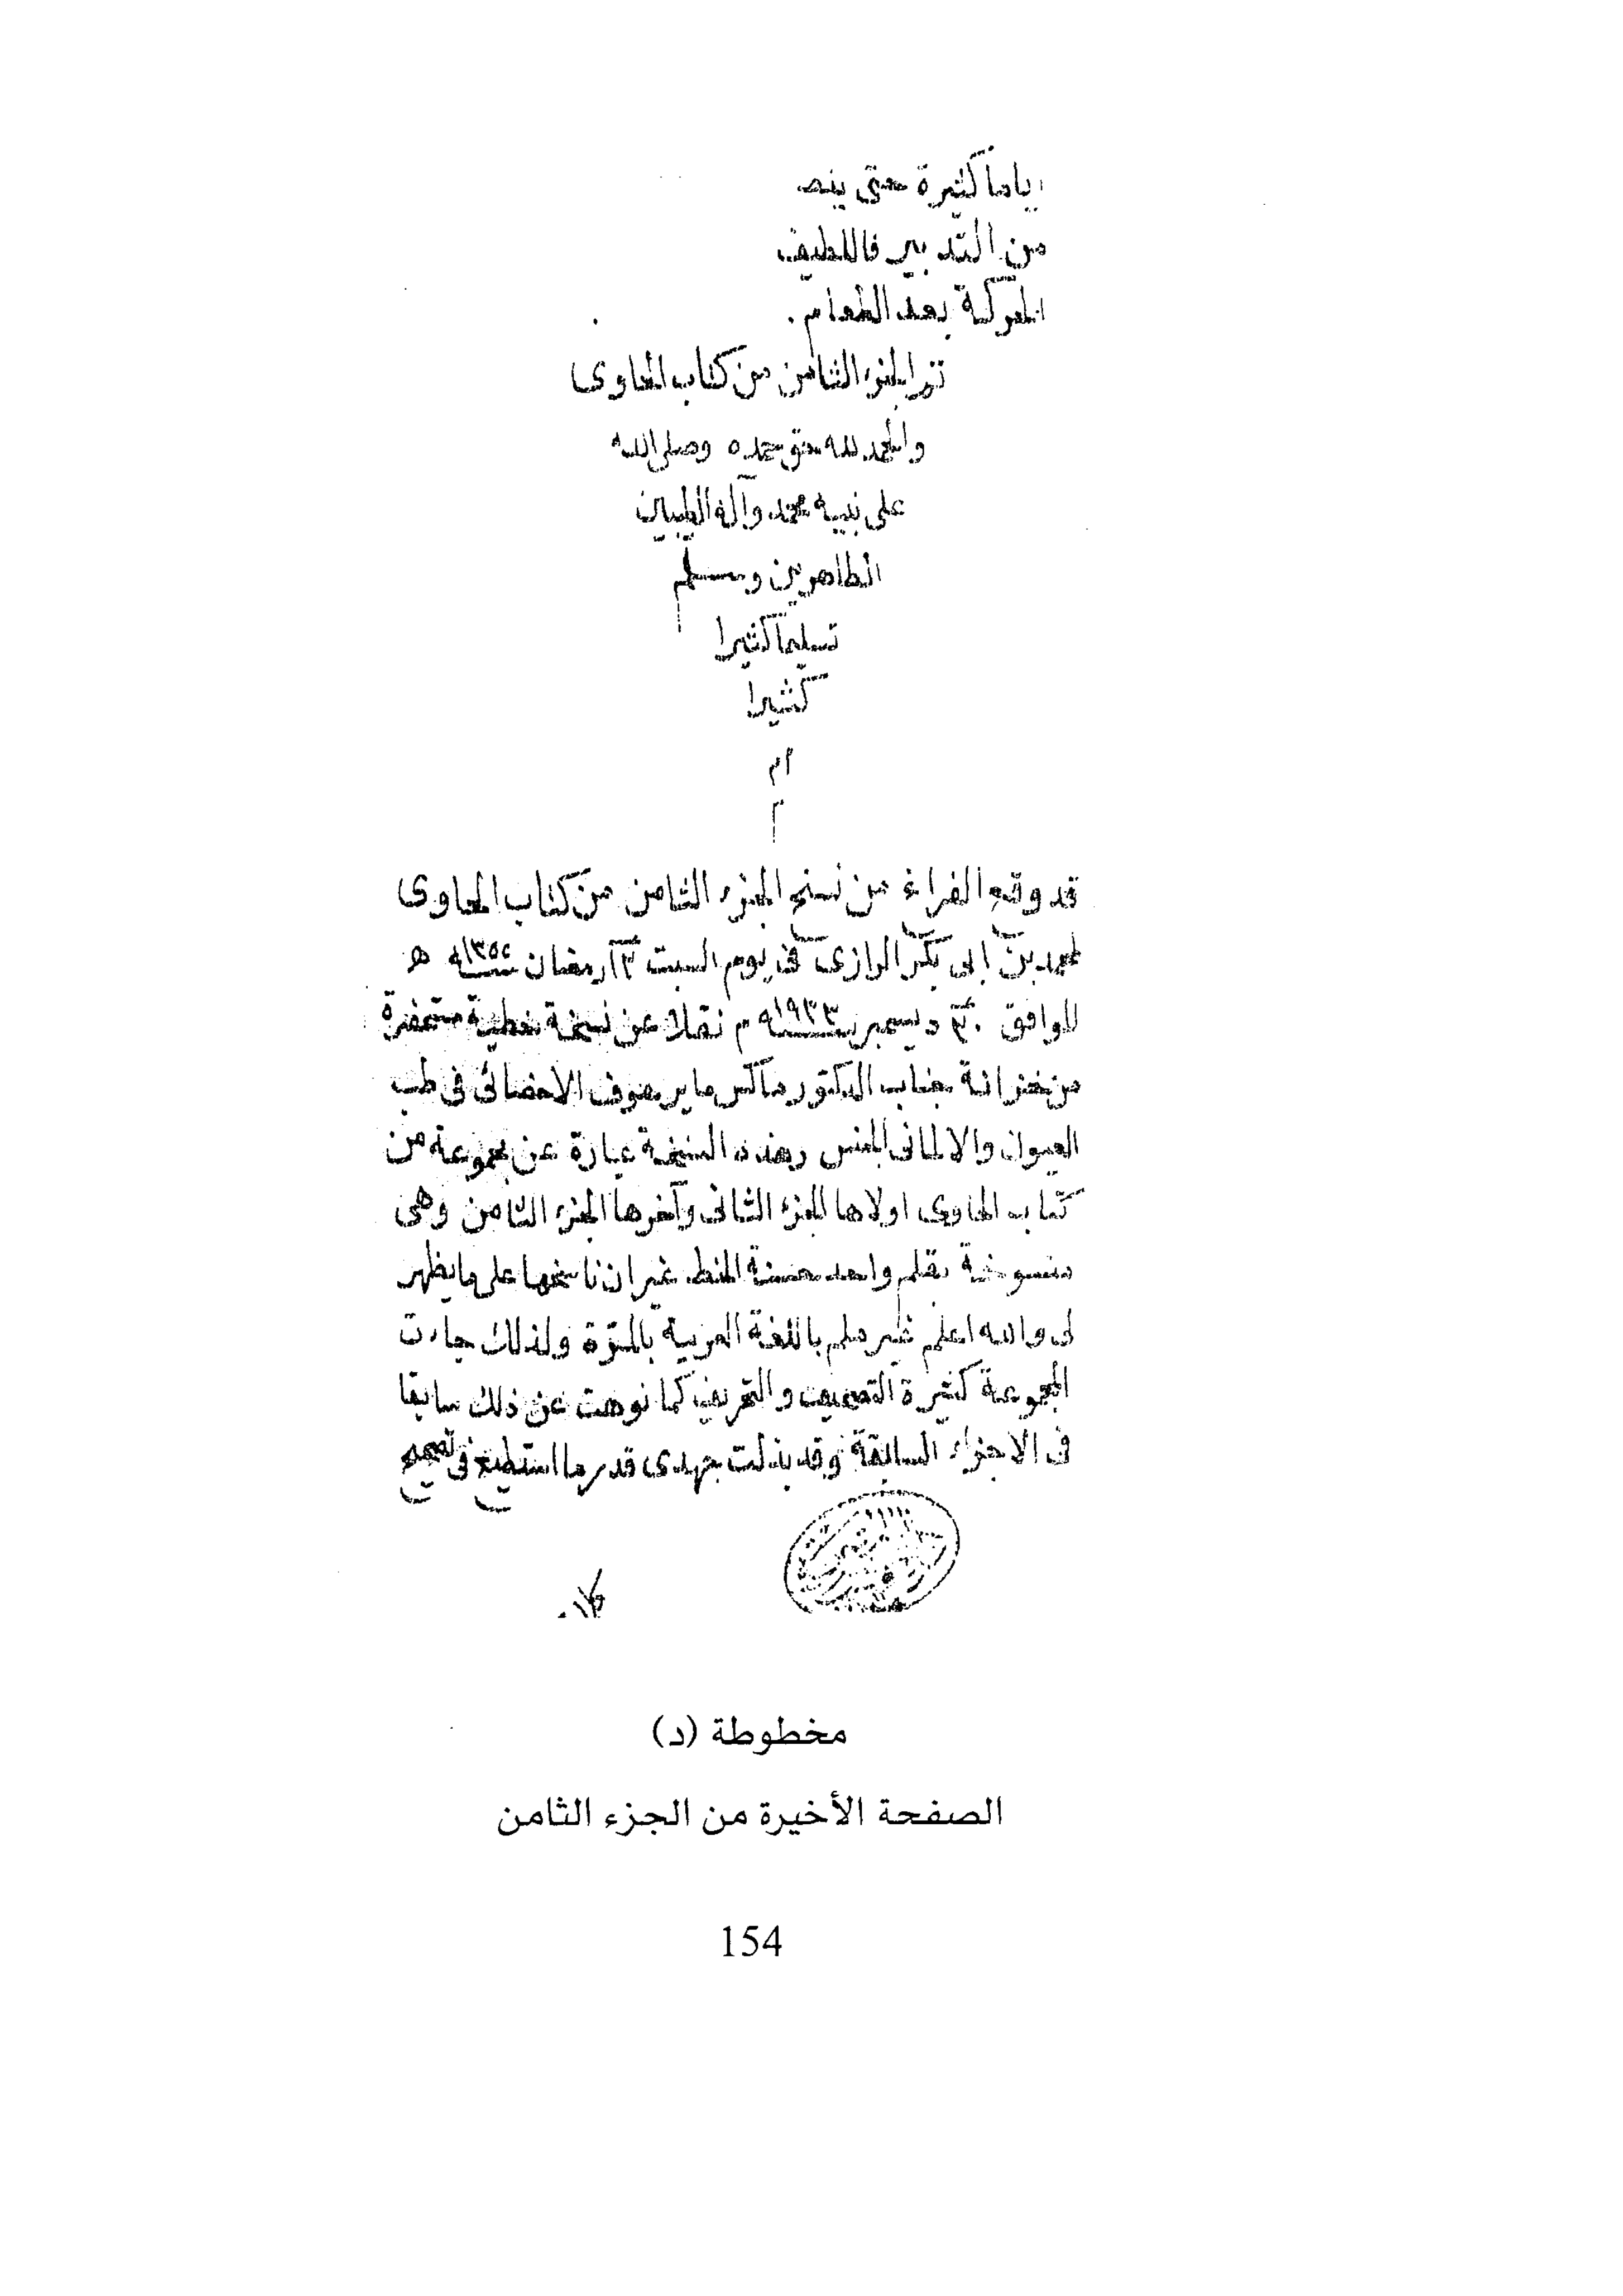 اياما كثيرة حتى ينـ
من التدبير فاللطيف
الحركة بعد الطعام.
تم الجزء الثامن من كتاب الحاوى
والحمد لله حق حمده وصلى الله
على نبيه محمد وآله الطيبين
الطاهرين وسلم
تسليما كثيرا
كثيرا
ام
م
قد وقع الفراغ من نسخ الجزء الثامن من كتاب الحاوى
لمحمد بن ابى بكر الرازى فى يوم السبت ١٣ رمضان سنة ١٣٥٢ ه
الموافق ٣٠ ديسمبر سنة ١٩٣٣ م نقلا عن نسخة خطية متحضرة
من خزانة جناب الدكتور ماكس مايرهوف الاخصائى فى طب
العيون والالمانى الجنس وهذه النسخة عبارة عن مجموعة من
كتاب الحاوى اولاها الجزء الثانى وآخرها الجزء الثامن وهى
منسوخة بقلم واحد حسنة الخط غير ان ناسخها على ما يظهر
لى والله اعلم غير ملم باللغة العربية بالمرّة ولذلك جاءت
المجموعة كثيرة التصحيف والتحريف كما نوهت عن ذلك سابقا
فى الاجزاء السابقة وقد بذلت جهدى قدر ما استطيع فى تصحيح
مخطوطة (د)
الصفحة الأخيرة من الجزء الثامن
154